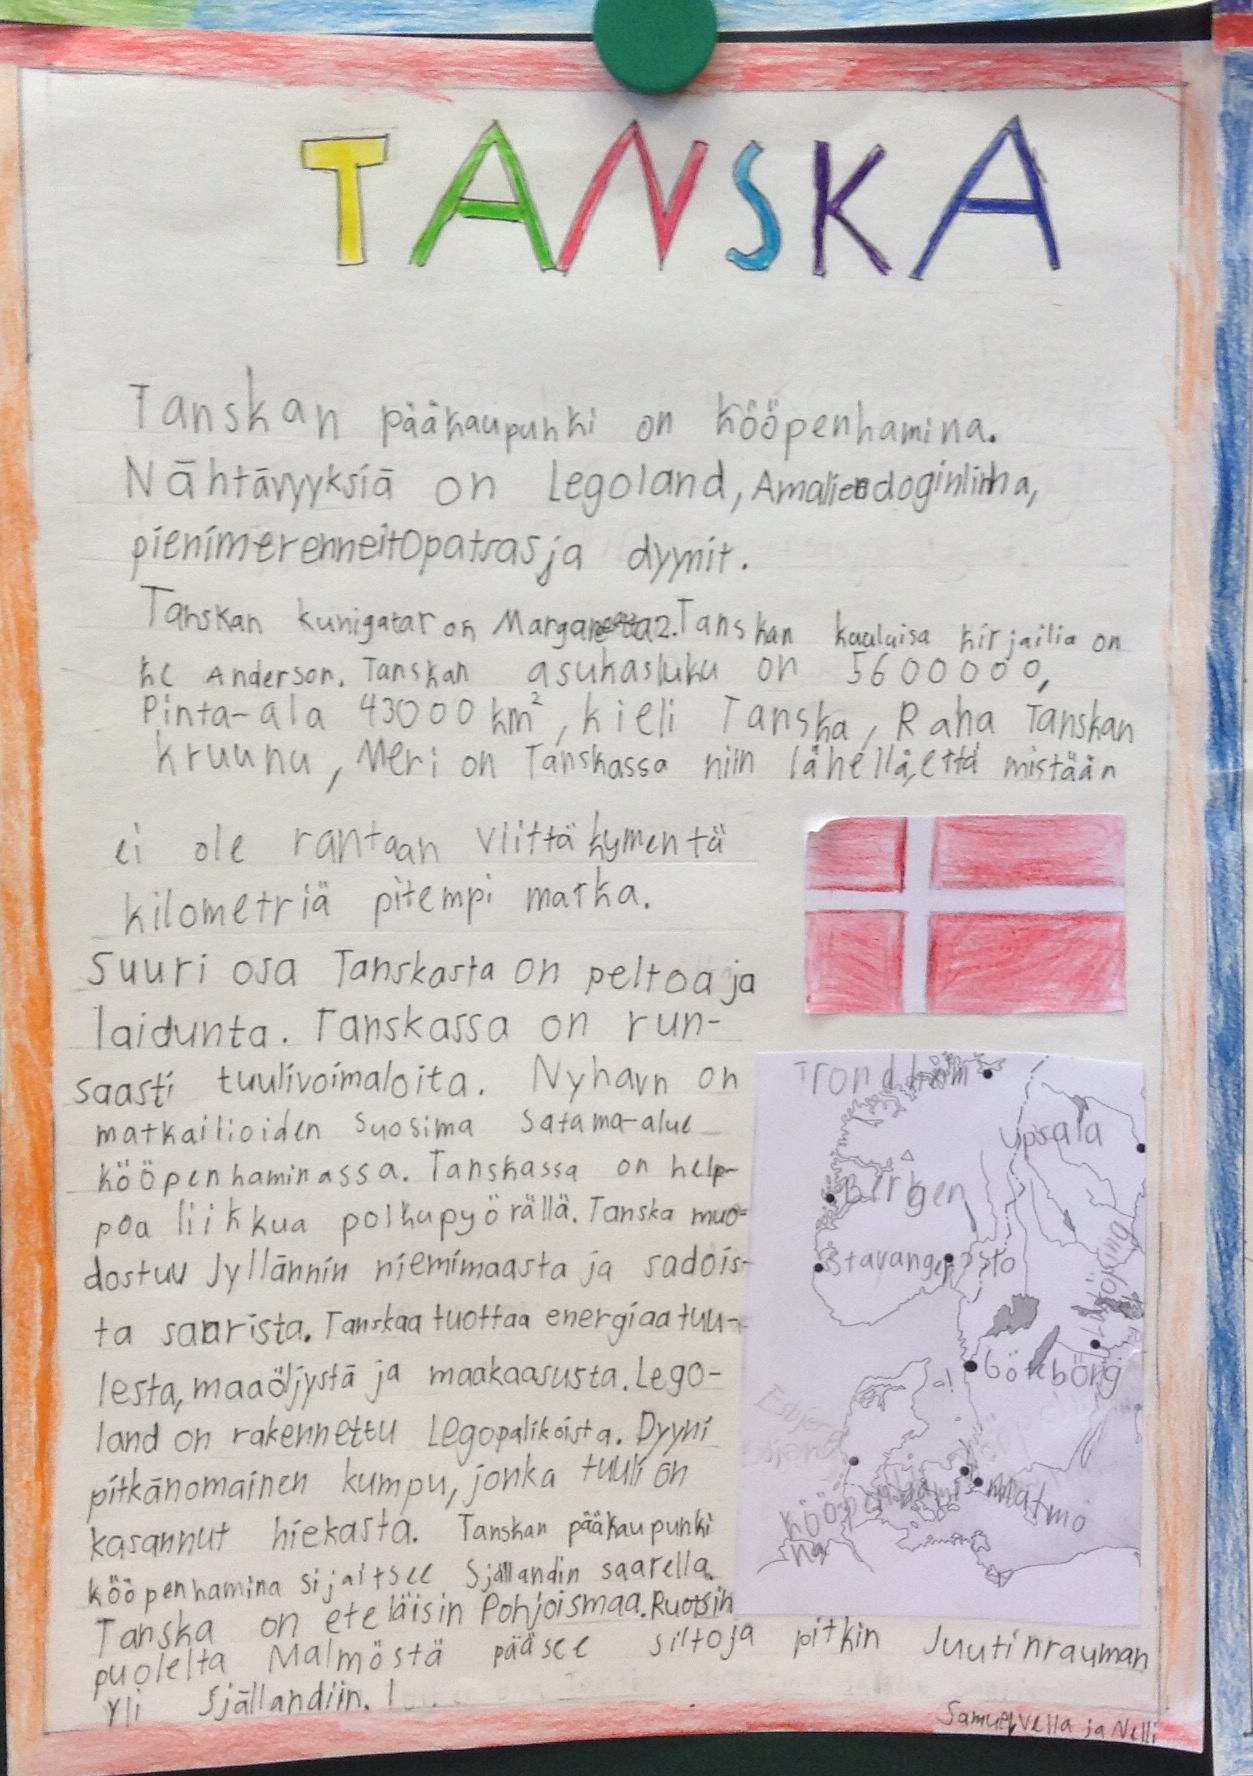 TANSKA
Tanskan pääkaupunki on Kööpenhamina.
Nähtävyyksiä on Legoland, Amaliendoginlinna,
pienimerenneitopatsas ja dyynit.
Tanskan kunigatar on Margareeta2. Tanskan kuuluisa kirjailia on
HC Anderson. Tanskan asukasluku on 5600000,
Pinta-ala 43000 km², kieli Tanska, Raha Tanskan
kruunu, Meri on Tanskassa niin lähellä, että mistään
ei ole rantaan viittäkymentä
kilometriä pitempi matka.
Suuri osa Tanskasta on peltoa ja
laidunta. Tanskassa on run-
saasti tuulivoimaloita. Nyhavn on
matkailioiden suosima satama-alue
kööpenhaminassa. Tanskassa on help-
poa liikkua polkupyörällä. Tanska muo-
dostuu Jyllännin niemimaasta ja sadois-
ta saarista. Tanskaa tuottaa energiaa tuu-
lesta, maaöljystä ja maakaasusta. Lego-
land on rakennettu Legopalikoista. Dyyni
pitkänomainen kumpu, jonka tuuli on
kasannut hiekasta. Tanskan pääkaupunki
kööpenhamina sijaitsee Själlandin saarella.
Tanska on eteläisin Pohjoismaa. Ruotsin
puolelta Malmöstä pääsee siltoja pitkin Juutinrauman
yli Själlandiin.
Trondheim
Upsala
Bergen
Stavanger
Oslo
Göteborg
Esbjerg
Malmö
Kööpenhami
na
Samuel, Vella ja Nelli